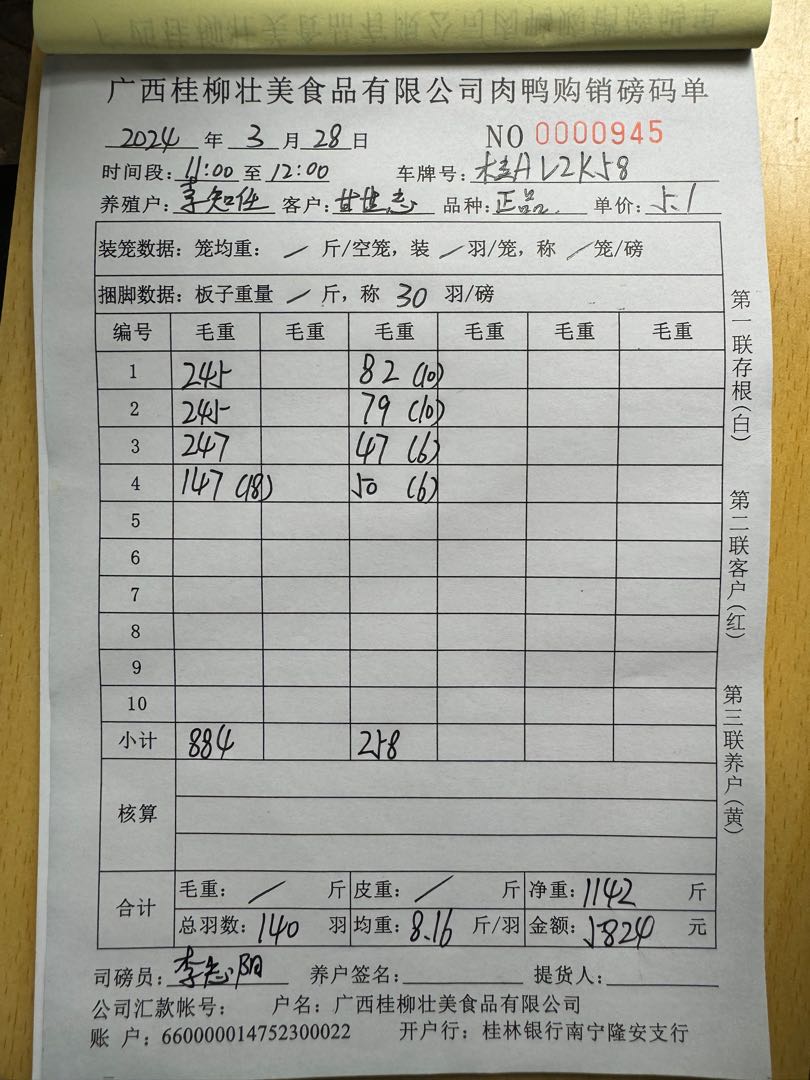 广西桂柳壮美食品有限公司肉鸭购销磅码单
2024 年 3 月 28 日 NO 0000945
时间段: 11:00 至 12:00 车牌号: 桂A V2K58
养殖户: 李知任 客户: 甘世志 品种: 正品. 单价: 5.1
装笼数据: 笼均重: / 斤/空笼, 装 / 羽/笼, 称 / 笼/磅
捆脚数据: 板子重量 / 斤, 称 30 羽/磅
编号 毛重 毛重 毛重 毛重 毛重 毛重
1 245 82 (10)
2 245 79 (10)
3 247 47 (6)
4 147 (18) 50 (6)
5
6
7
8
9
10
小计 884 258
核算
合计
毛重: / 斤 皮重: / 斤 净重: 1142 斤
总羽数: 140 羽 均重: 8.16 斤/羽 金额: 5824 元
司磅员: 李志阳 养户签名: 提货人:
公司汇款帐号: 户名: 广西桂柳壮美食品有限公司
账 户: 660000014752300022 开户行: 桂林银行南宁隆安支行
第一联存根(白)
第二联客户(红)
第三联养户(黄)